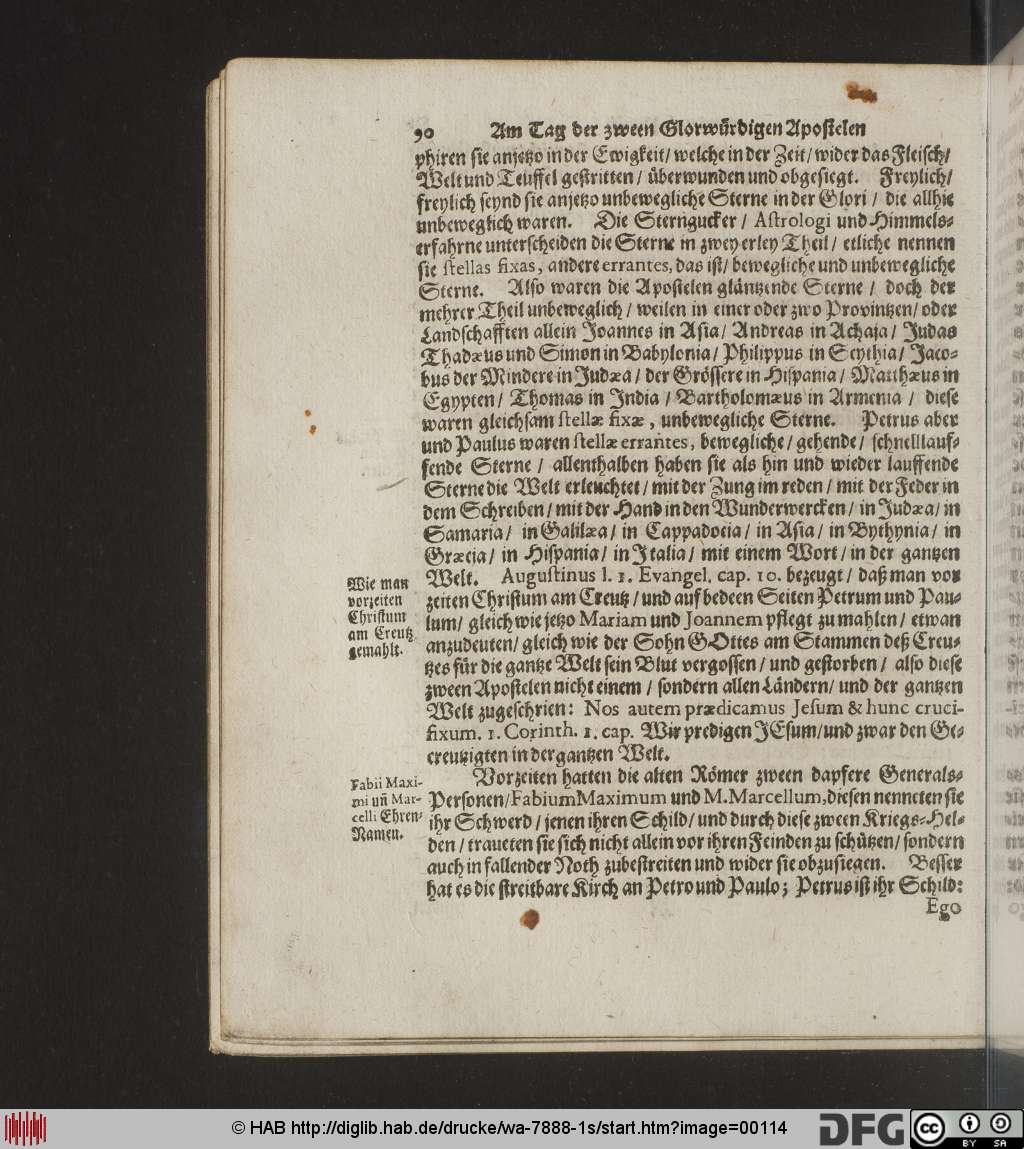 90 Am Tag der zween Glorwürdigen Apostelen
phiren sie anjetzo in der Ewigkeit/ welche in der Zeit/ wider das Fleisch/
Welt und Teuffel gestritten/ überwunden und obgesiegt. Freylich/
freylich seynd sie anjetzo unbewegliche Sterne in der Glori/ die allhie
unbeweglich waren. Die Sterngucker/ Astrologi und Himmels-
erfahrne unterscheiden die Sterne in zweyerley Theil/ etliche nennen
sie stellas fixas, andere errantes, das ist/ bewegliche und unbewegliche
Sterne. Also waren die Apostelen gläntzende Sterne/ doch der
mehrer Theil unbeweglich/ weilen in einer oder zwo Provintzen/ oder
Landschafften allein Joannes in Asia/ Andreas in Achaja/ Judas
Thadæus und Simon in Babylonia/ Philippus in Scythia/ Jaco-
bus der Mindere in Judæa/ der Grössere in Hispania/ Matthæus in
Egypten/ Thomas in India/ Bartholomæus in Armenia/ diese
waren gleichsam stellæ fixæ, unbewegliche Sterne. Petrus aber
und Paulus waren stellæ errantes, bewegliche/ gehende/ schnelllauf-
fende Sterne/ allenthalben haben sie als hin und wieder lauffende
Sterne die Welt erleuchtet/ mit der Zung im reden/ mit der Feder in
dem Schreiben/ mit der Hand in den Wunderwercken/ in Judæa/ in
Samaria/ in Galilæa/ in Cappadocia/ in Asia/ in Bythynia/ in
Græcia/ in Hispania/ in Italia/ mit einem Wort/ in der gantzen
Welt. Augustinus l. 1. Evangel. cap. 10. bezeugt/ daß man vor
zeiten Christum am Creutz/ und auf bedeen Seiten Petrum und Pau-
lum/ gleich wie jetzo Mariam und Joannem pflegt zu mahlen/ etwan
anzudeuten/ gleich wie der Sohn GOttes am Stammen deß Creu-
tzes für die gantze Welt sein Blut vergossen/ und gestorben/ also diese
zween Apostelen nicht einem/ sondern allen Ländern/ und der gantzen
Welt zugeschrien: Nos autem prædicamus Jesum & hunc cruci-
fixum. 1. Corinth. 1. cap. Wir predigen JEsum/und zwar den Ge-
creutzigten in der gantzen Welt.
Wie man
vorzeiten
Christum
am Creutz
gemahlt.
Vorzeiten hatten die alten Römer zween dapfere Generals-
Personen/ Fabium Maximum und M. Marcellum, diesen nenneten sie
ihr Schwerd/ jenen ihren Schild/ und durch diese zween Kriegs-Hel-
den/ traueten sie sich nicht allein vor ihren Feinden zu schützen/ sondern
auch in fallender Noth zubestreiten und wider sie obzusiegen. Besser
hat es die streitbare Kirch an Petro und Paulo; Petrus ist ihr Schild:
Fabii Maxi-
mi uñ Mar-
celli Ehren-
Namen.
Ego
© HAB http://diglib.hab.de/drucke/wa-7888-1s/start.htm?image=00114
DFG
cc BY SA